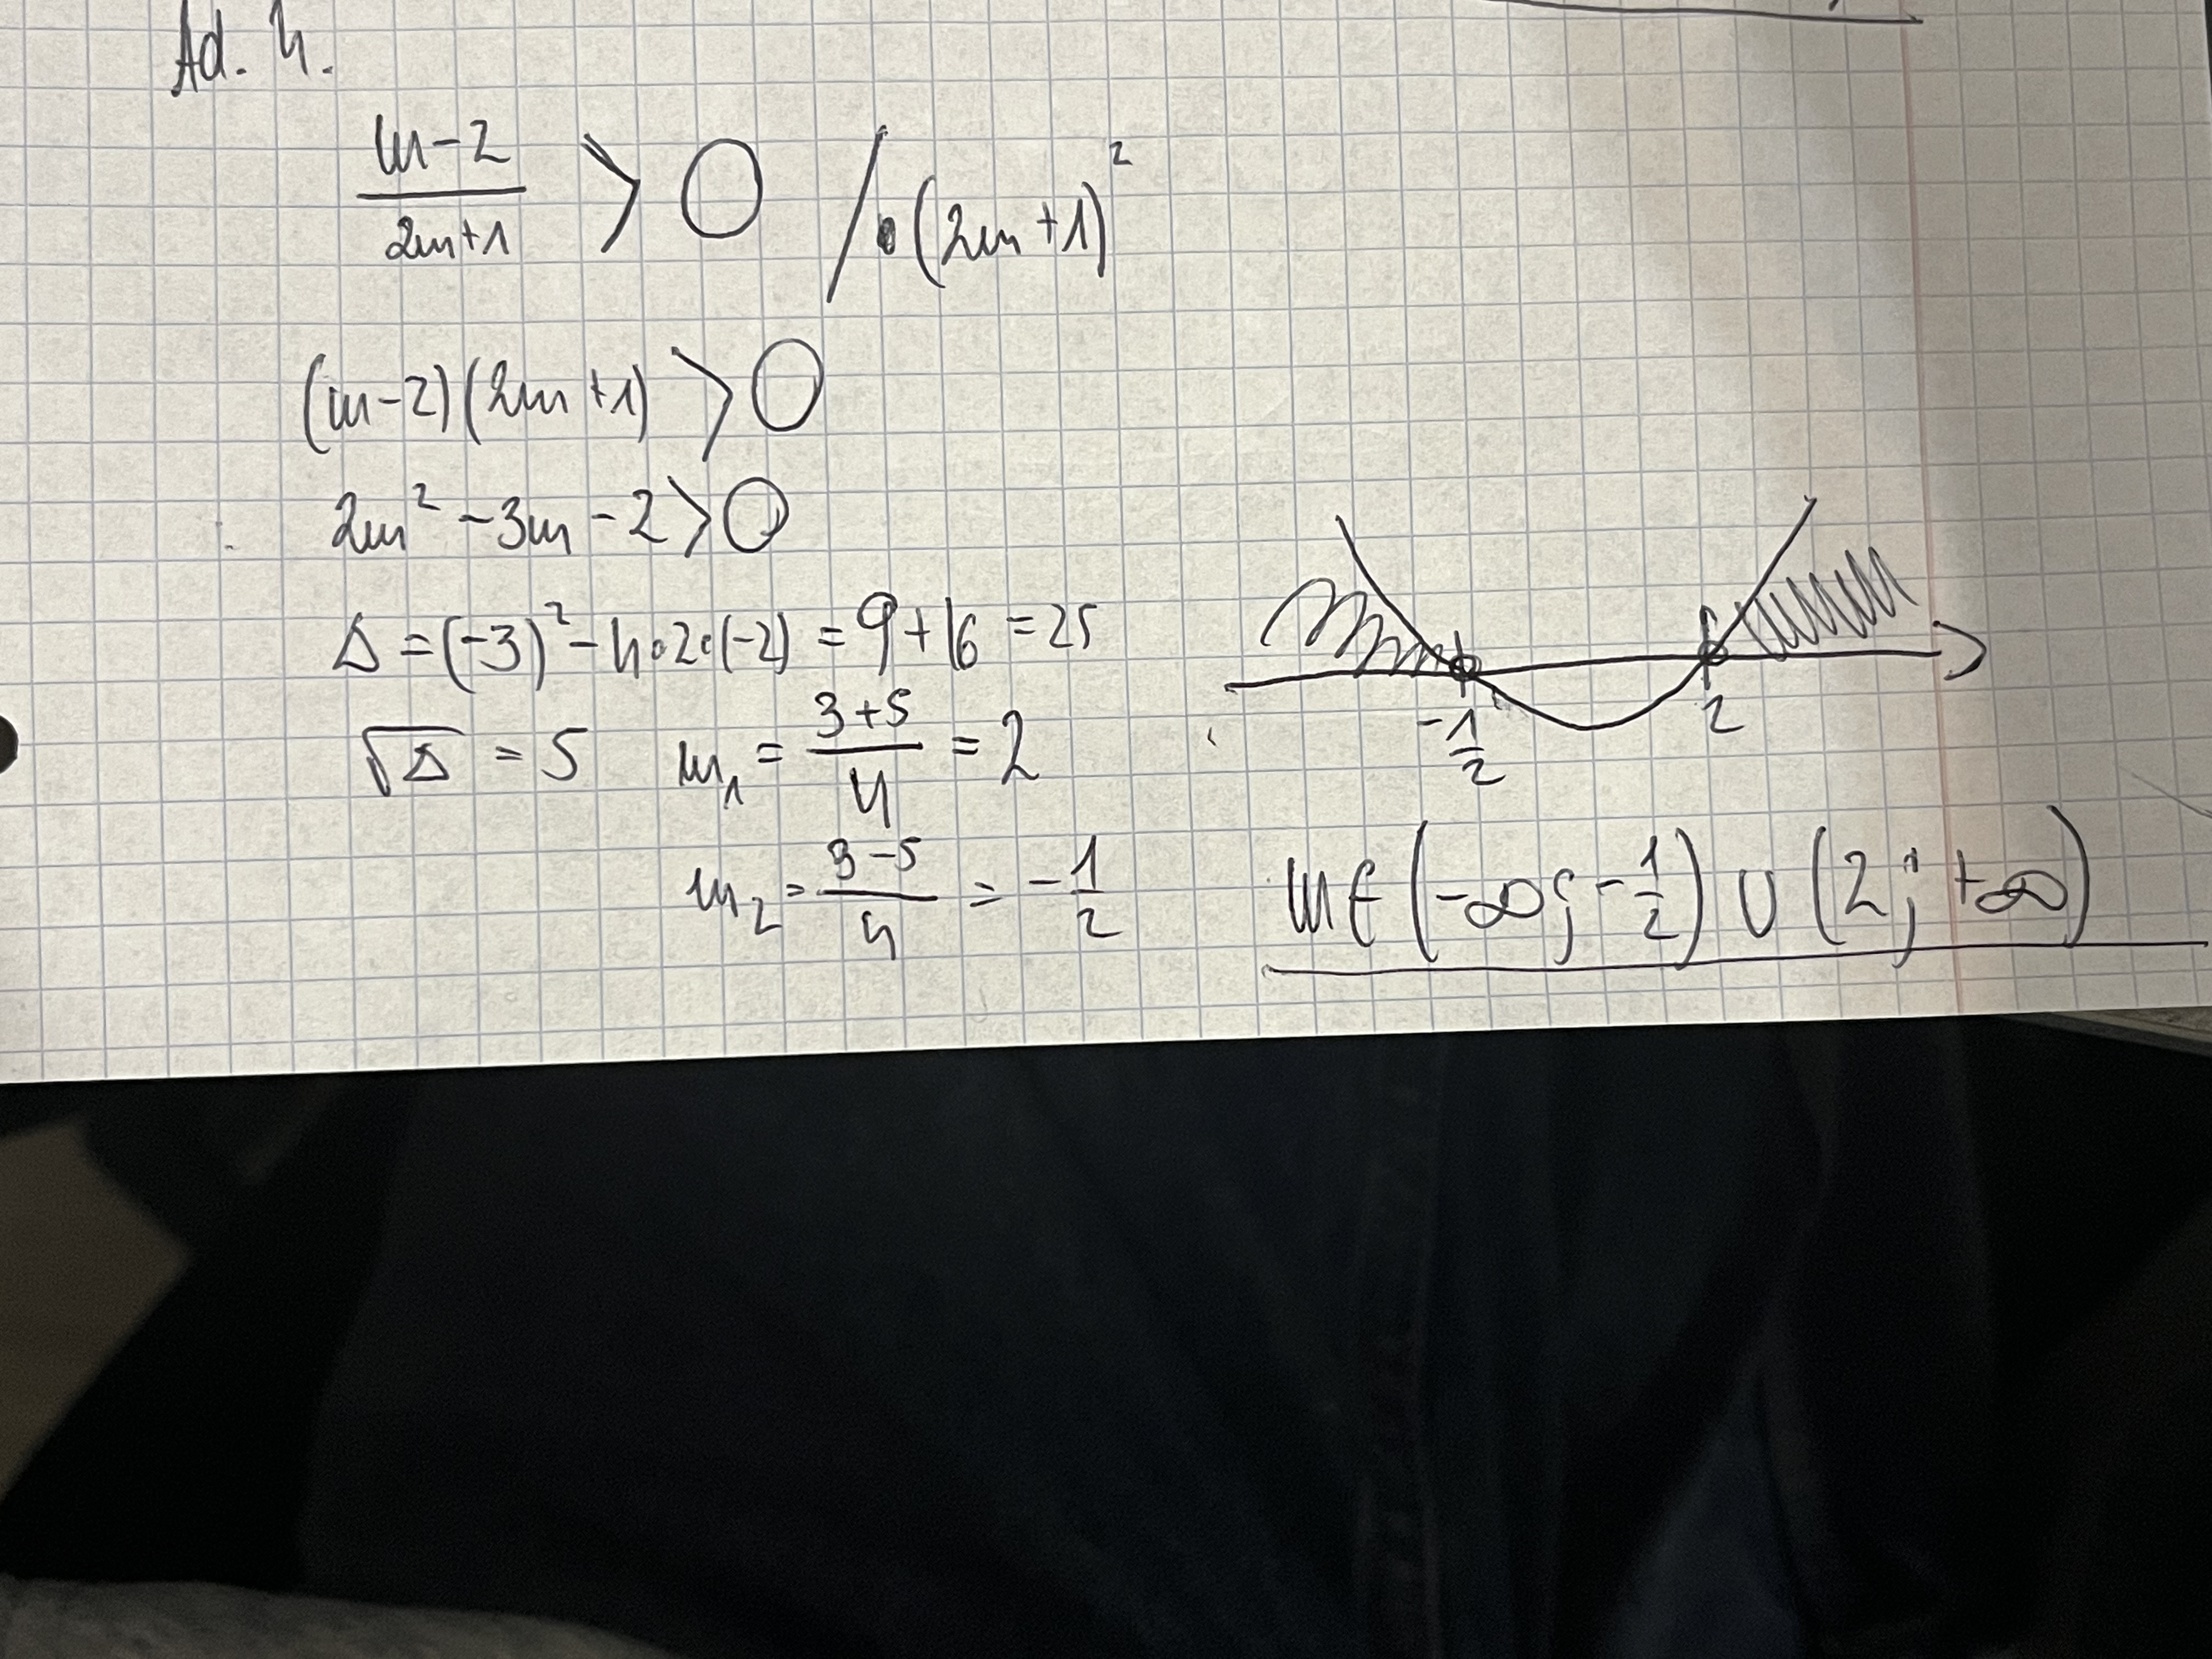 Ad. 4.
m-2/2m+1 > 0 /·(2m+1)²
(m-2)(2m+1) > 0
2m² -3m -2 > 0
Δ = (-3)² - 4·2·(-2) = 9+16 = 25
√Δ = 5 m₁ = 3+5/4 = 2
m₂ = 3-5/4 = -1/2
-1/2 2
m∈(-∞; -1/2) ∪ (2; +∞)